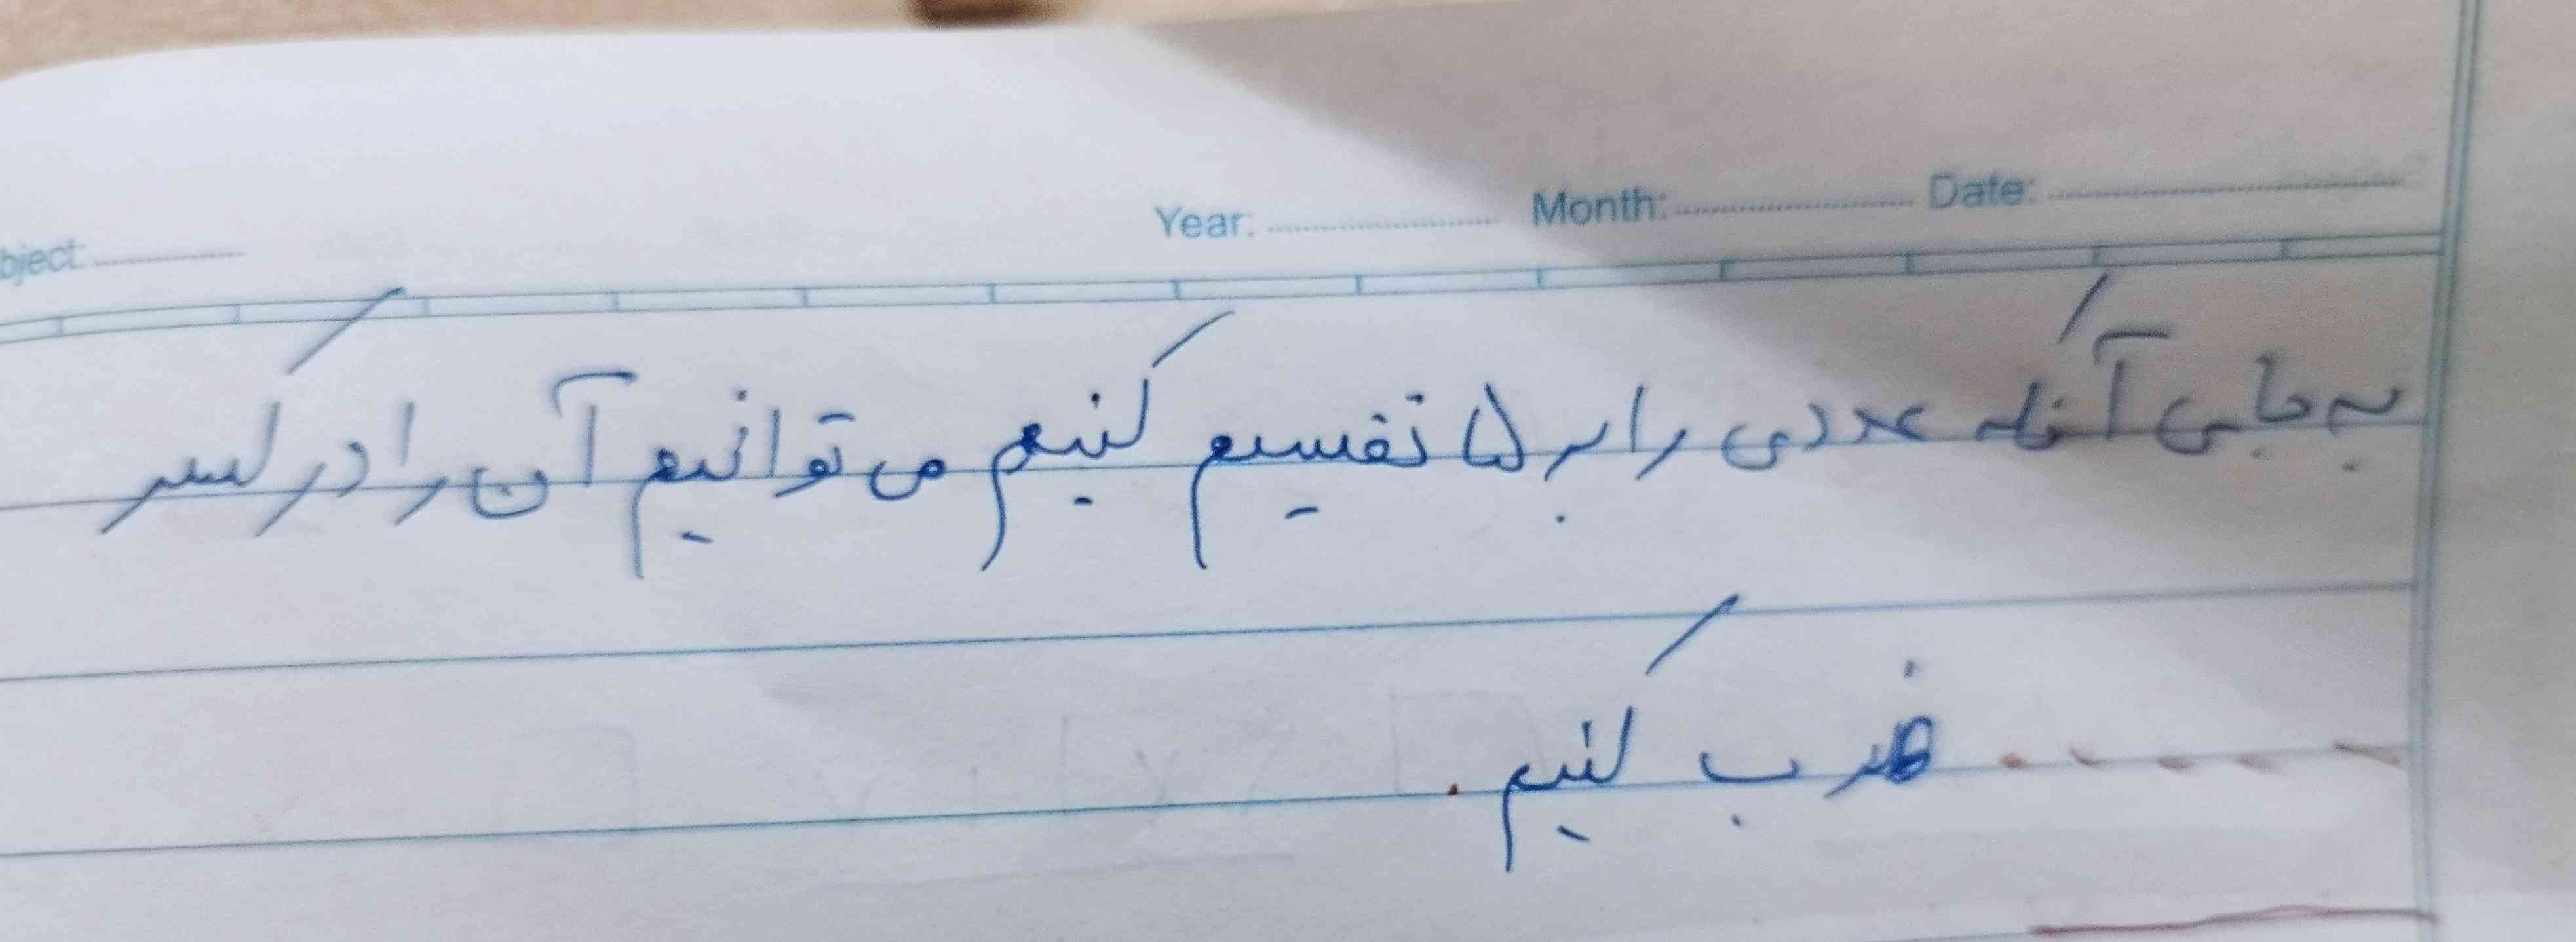 bject: ............ Year: .................... Month: .................... Date: ....................
به جایی آنکه عددی را بر ۵ تقسیم کنیم می توانیم آن را در کسر
..... ضرب کنیم .